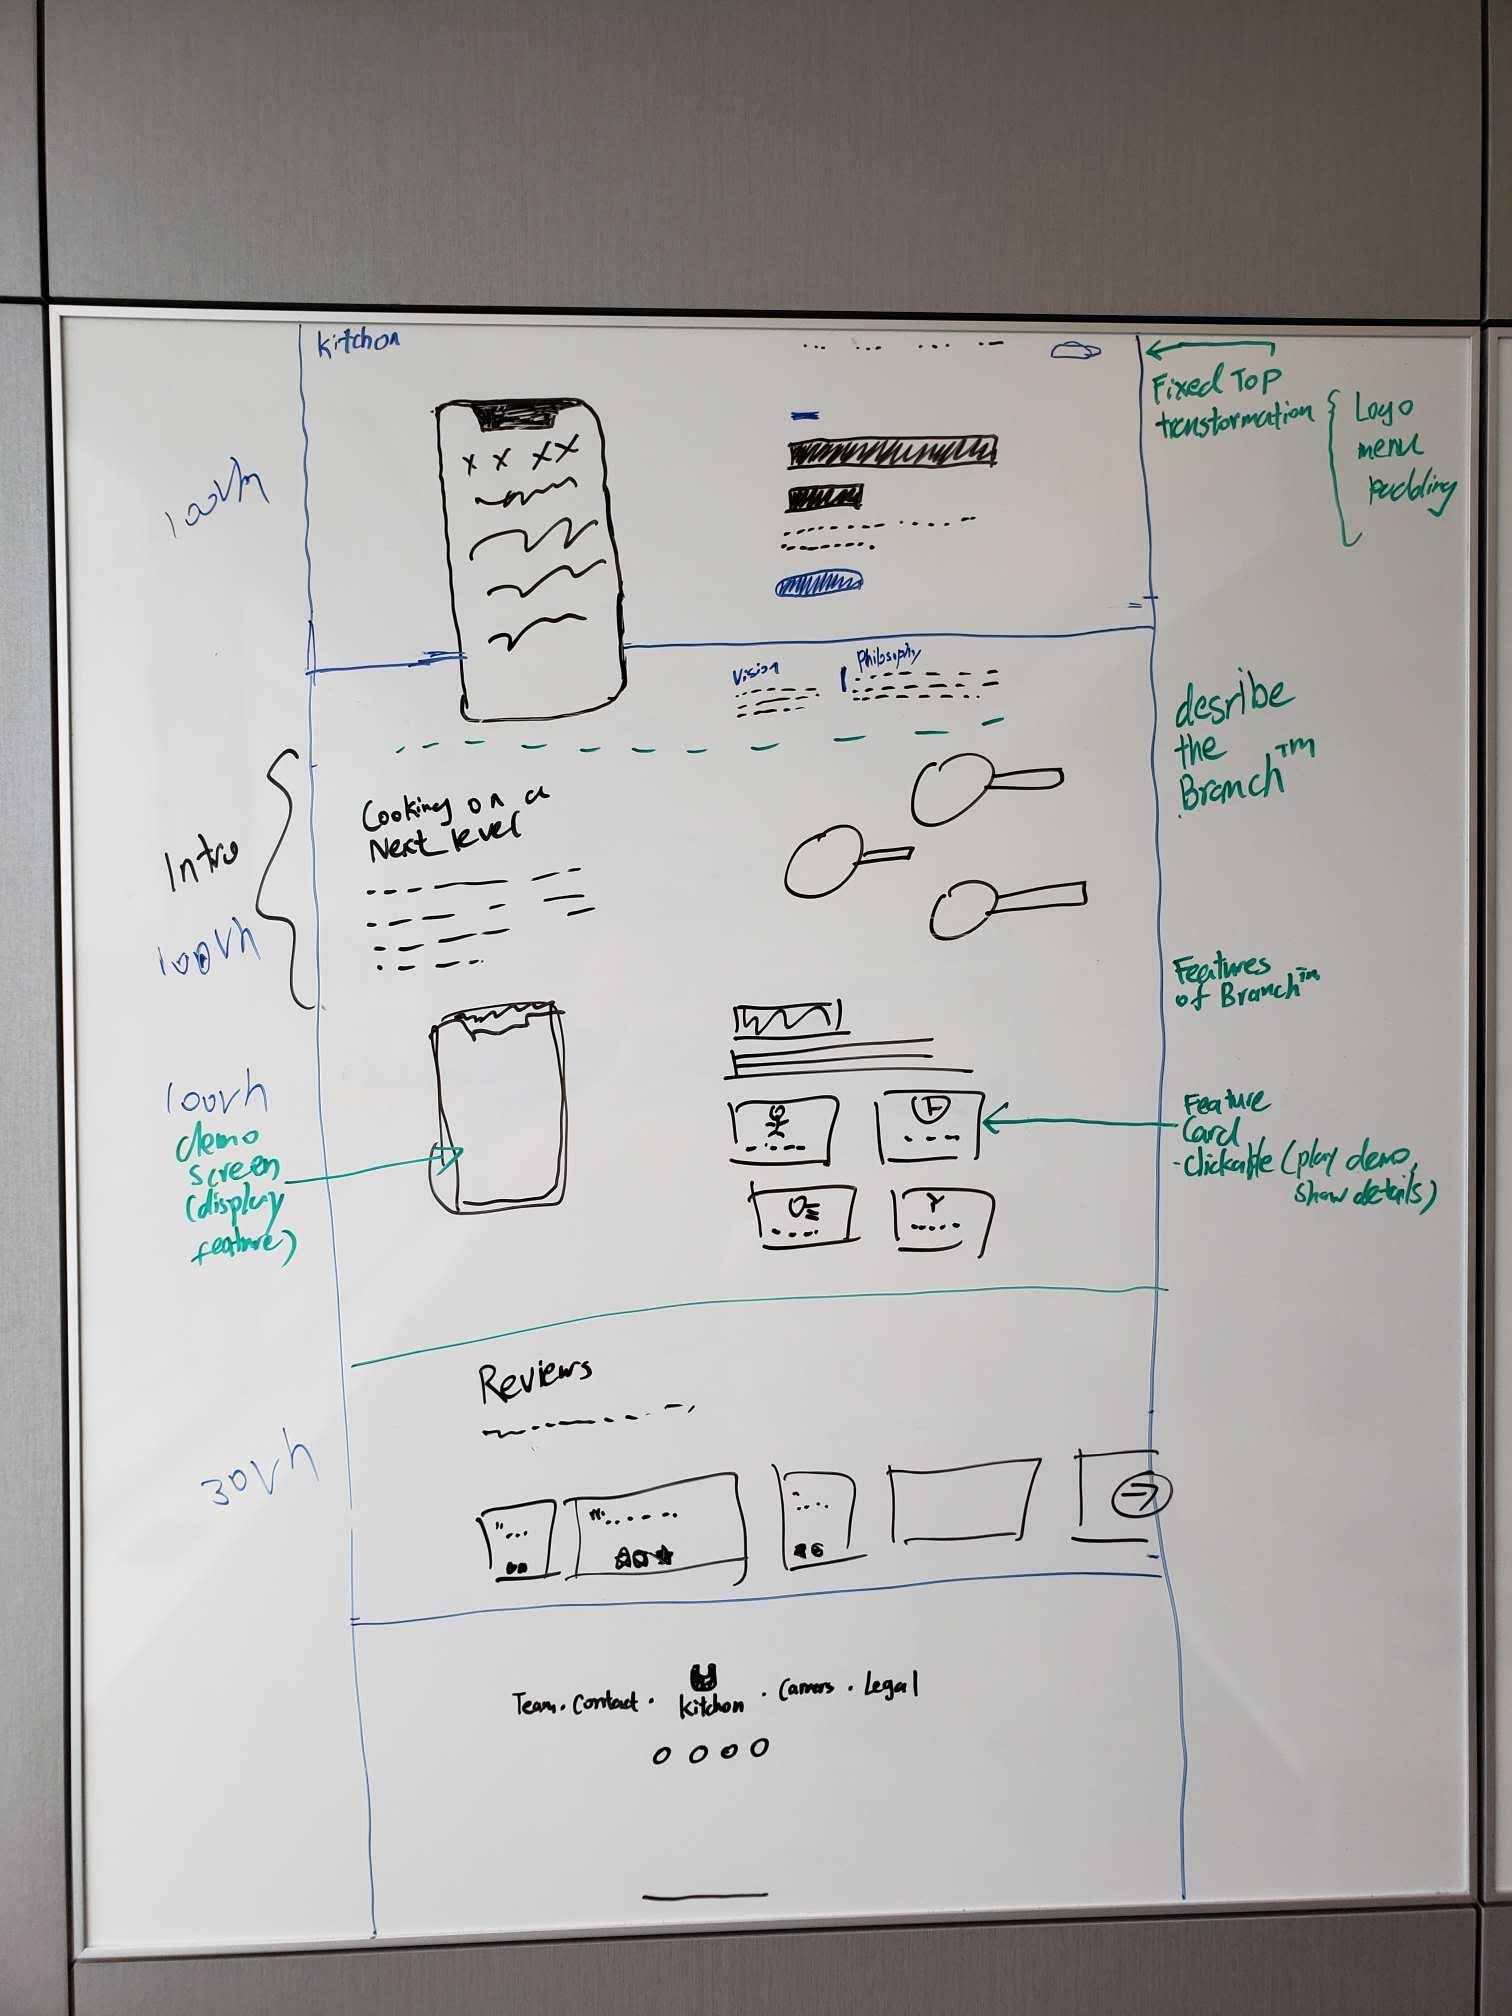 kitchon
Fixed Top
transformation
Logo
menu
padding
100vh
x x xx
Vision
Philosophy
desribe
the
Branch™
Cooking on a
Next level
Intro
100vh
Features
of Branch™
100vh
demo
screen
(display
feature)
Feature
Card
-Clickable (play demo,
show details)
Reviews
30vh
Team · Contact · kitchon · Careers · Legal